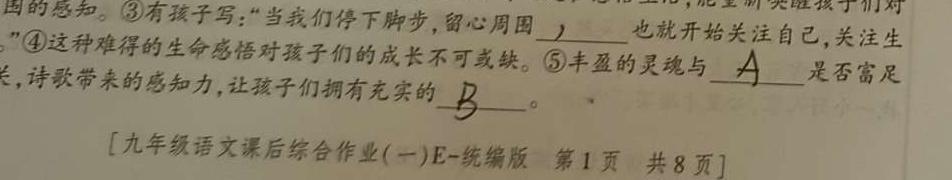 围的感知。③有孩子写:“当我们停下脚步,留心周围 , 也就开始关注自己,关注生
。”④这种难得的生命感悟对孩子们的成长不可或缺。⑤丰盈的灵魂与 A 是否富足
关,诗歌带来的感知力,让孩子们拥有充实的 B 。
[九年级语文课后综合作业(一)E-统编版 第1页 共8页]